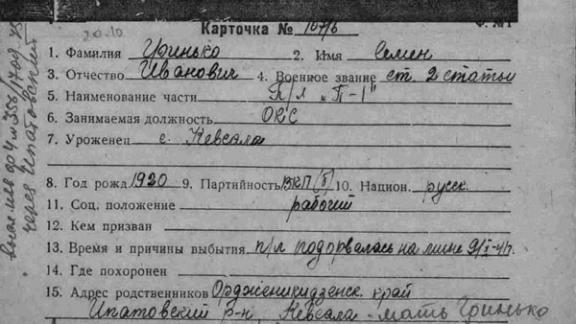 20.10
Карточка № 1071б
Ф. № 1
1. Фамилия Гринько 2. Имя Семен
3. Отчество Иванович 4. Военное звание ст. 2 статьи
5. Наименование части П/л „П-1"
6. Занимаемая должность
7. Уроженец с. Кевсала
8. Год рожд 1920 9. Партийность ВКП(б) 10. Национ. русск.
11. Соц. положение рабочий
12. Кем призван
13. Время и причины выбытия п/л подорвалась на мине
14. Где похоронен
15. Адрес родственников Орджоникидзенск. край
Ипатовский р-н, Кевсала - мать Гринько
через Ипатовский